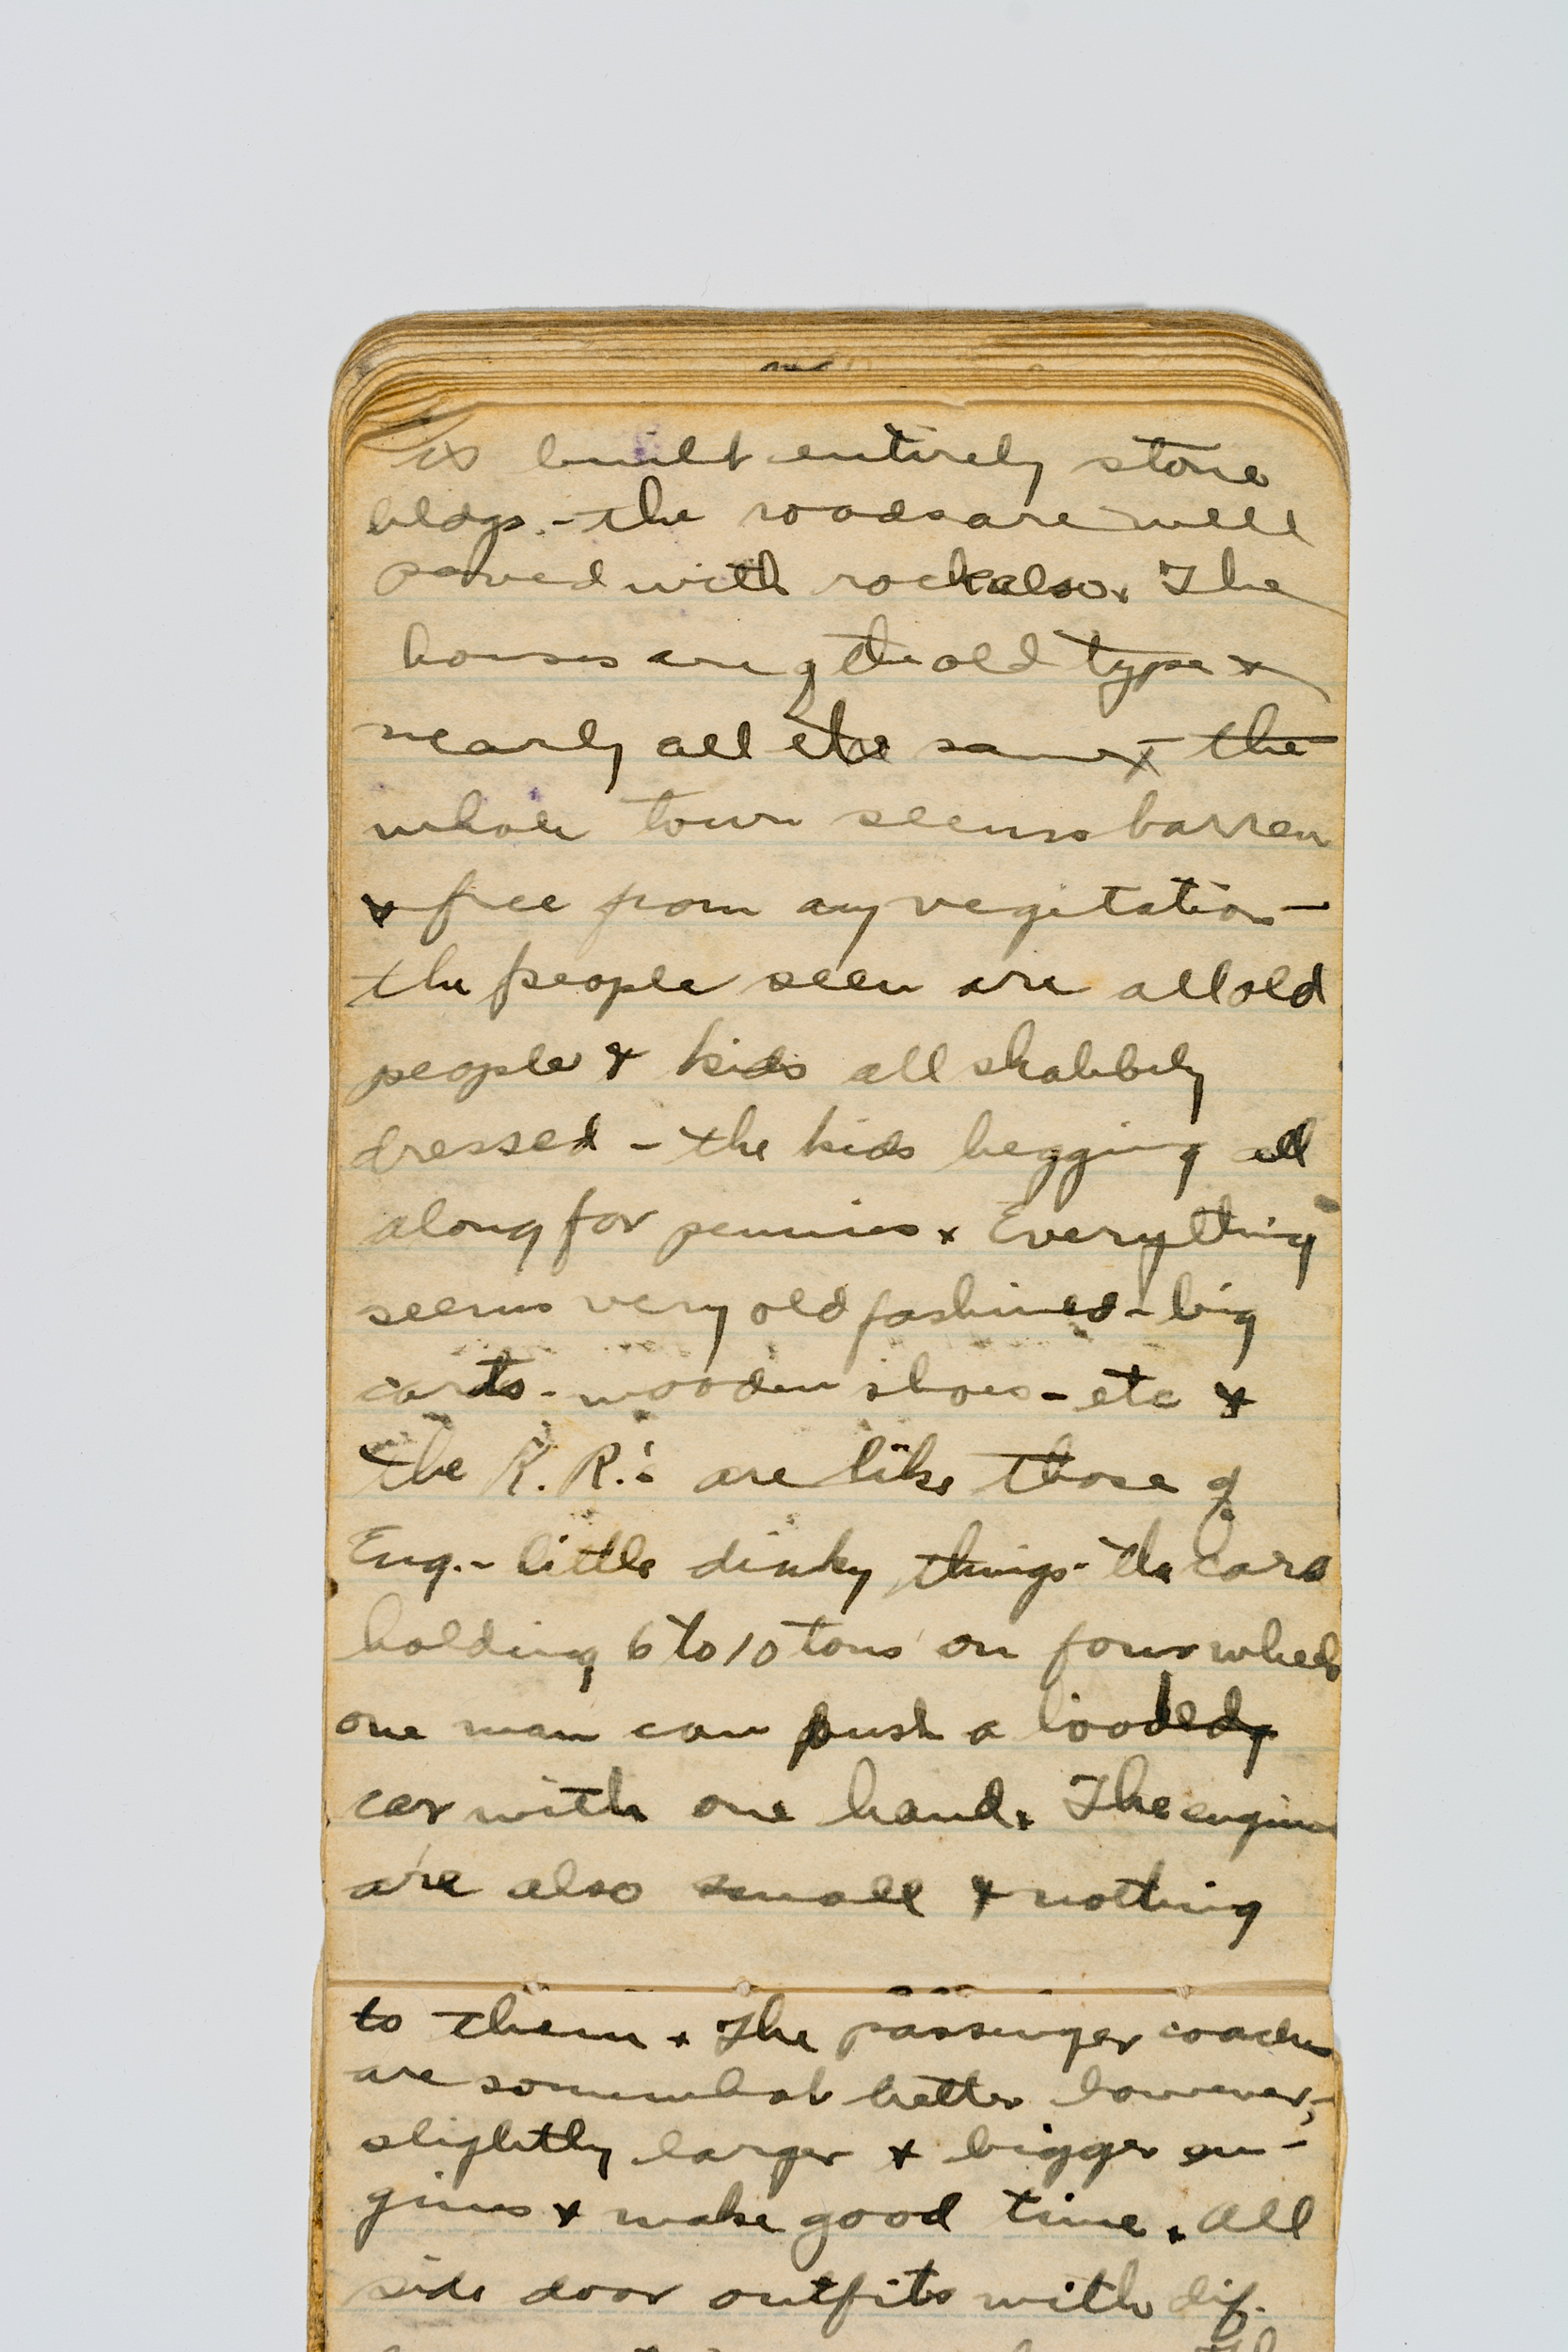 is built entirely stone
bldgs. - the roads are well
paved with rock also. The
houses are of the old type &
nearly all the same x the
whole town seems barren
& free from any vegitation -
the people seen are all old
people & kids all shabbily
dressed - the kids begging all
along for pennies x Everything
seems very old fashined - big
carts - wooden shoes - etc &
the R.R.'s are like those of
Eng. - little dinky things - the cars
holding 6 to 10 tons on four wheels
one man can push a loaded
car with one hand. The engines
are also small & nothing
to them x The passenger coaches
are somewhat better however,
slightly larger & bigger en-
gines & make good time. All
side door outfits with dif.